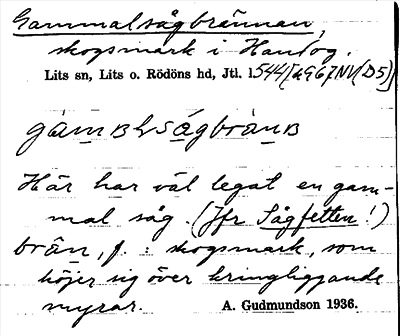 Gammalsågbrännan,
skogsmark i Handog.
Lits sn, Lits o. Rödöns hd, Jtl. 1544 [a967NV(D5)]
Här har väl legat en gam-
mal såg. (Jfr Sågfetten!)
brän, f. : skogsmark, som
höjer sig över kringliggande
myrar. A. Gudmundson 1936.